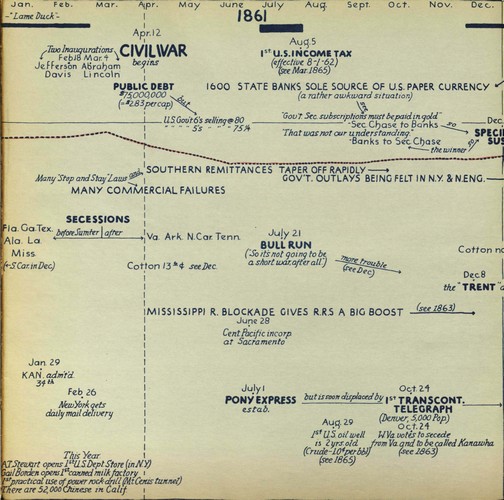 Jan. Feb. Mar. Apr. May. June July Aug. Sept. Oct. Nov. Dec.
"Lame Duck"
1861
Apr.12
CIVIL WAR
begins
Two Inaugurations
Feb 18 Mar 4
Jefferson Abraham
Davis Lincoln
Aug.5
1ST U.S. INCOME TAX
(effective 8-1-62)
(see Mar. 1865)
PUBLIC DEBT
$75,000,000
(=$2.83 per cap)
but
1600 STATE BANKS SOLE SOURCE OF U.S. PAPER CURRENCY
(a rather awkward situation)
see
U.S Gov't 6's selling @ 80
5's - 75¼
"Gov't Sec. subscriptions must be paid in gold"
-Sec Chase to Banks
"That was not our understanding."
-Banks to Sec Chase
so
the winner
so
Dec
SPECI
SUS
SOUTHERN REMITTANCES TAPER OFF RAPIDLY
Many "Stop and Stay" Laws and
GOV'T. OUTLAYS BEING FELT IN N.Y. & N.ENG.
MANY COMMERCIAL FAILURES
SECESSIONS
Fla. Ga. Tex.
before Sumter after
Ala. La.
Va. Ark. N.Car Tenn.
Miss
(+S.Car in Dec)
July 21
BULL RUN
("So its not going to be
a short war after all")
more trouble
(see Dec)
Cotton 13⅛¢ see Dec.
Cotton no
Dec 8
the "TRENT" a
MISSISSIPPI R. BLOCKADE GIVES R.R.S A BIG BOOST (see 1863)
June 28
Cent Pacific incorp
at Sacramento
Jan 29
KAN. admt'd
34th
Feb 26
New York gets
daily mail delivery
July 1
PONY EXPRESS
estab.
but is soon displaced by
Oct.24
1ST TRANSCONT.
TELEGRAPH
(Denver, 5,000 Pop)
Aug. 29
1st U.S. oil well
is 2 yrs. old
(Crude-10¢ per bbl)
(see 1865)
Oct.24
W.Va votes to secede
from Va. and to be called Kanawha
(see 1863)
This Year
A.T. Stewart opens 1st U.S. Dept Store (in N.Y.)
Gail Borden opens 1st canned milk factory
1st practical use of power rock drill (Mt. Cenis tunnel)
There are 52,000 Chinese in Calif.